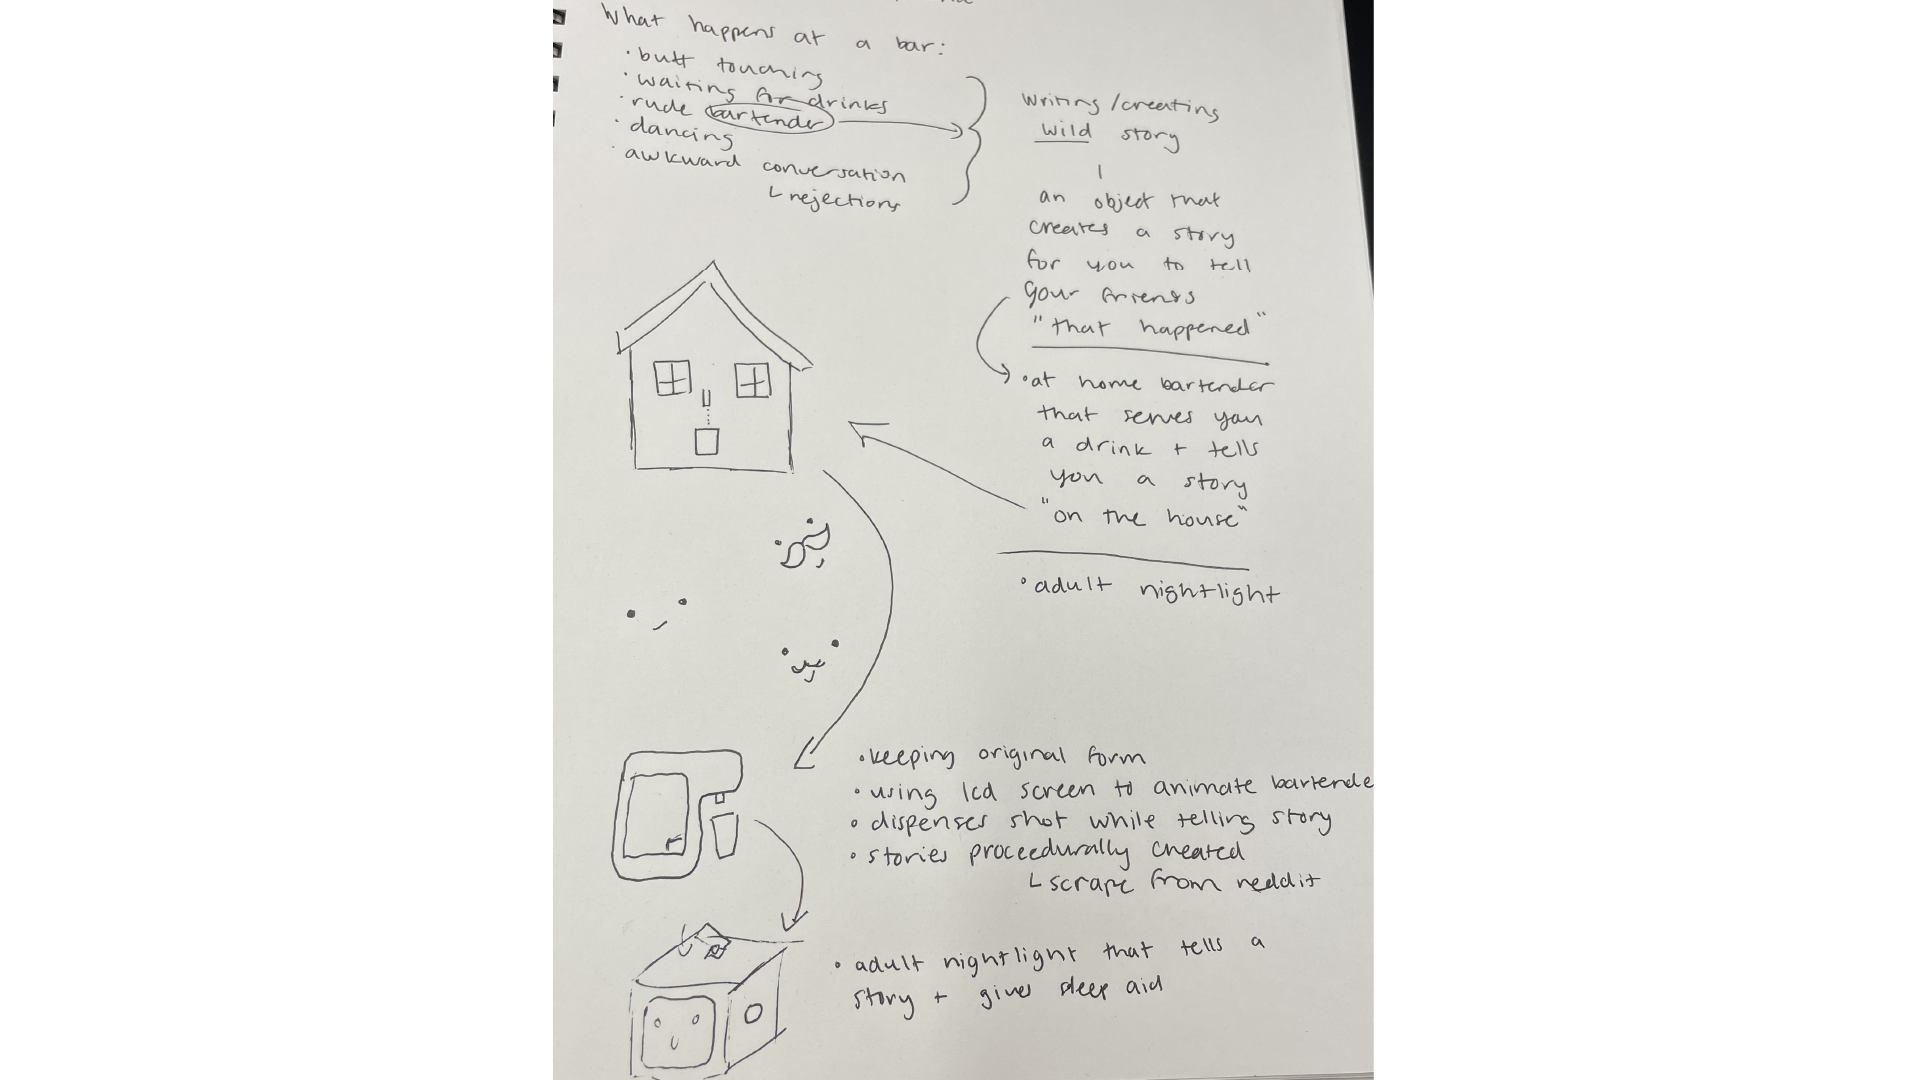 What happens at a bar:
· butt touching
· waiting for drinks
· rude bartender
· dancing
· awkward conversation
rejections
writing/creating
wild story
an object that
creates a story
for you to tell
your friends
"that happened"
· at home bartender
that serves you
a drink + tells
you a story
"on the house"
· adult nightlight
· keeping original form
· using lcd screen to animate bartende
· dispenses shot while telling story
· stories proceedurally created
scrape from reddit
· adult nightlight that tells a
story + gives sleep aid